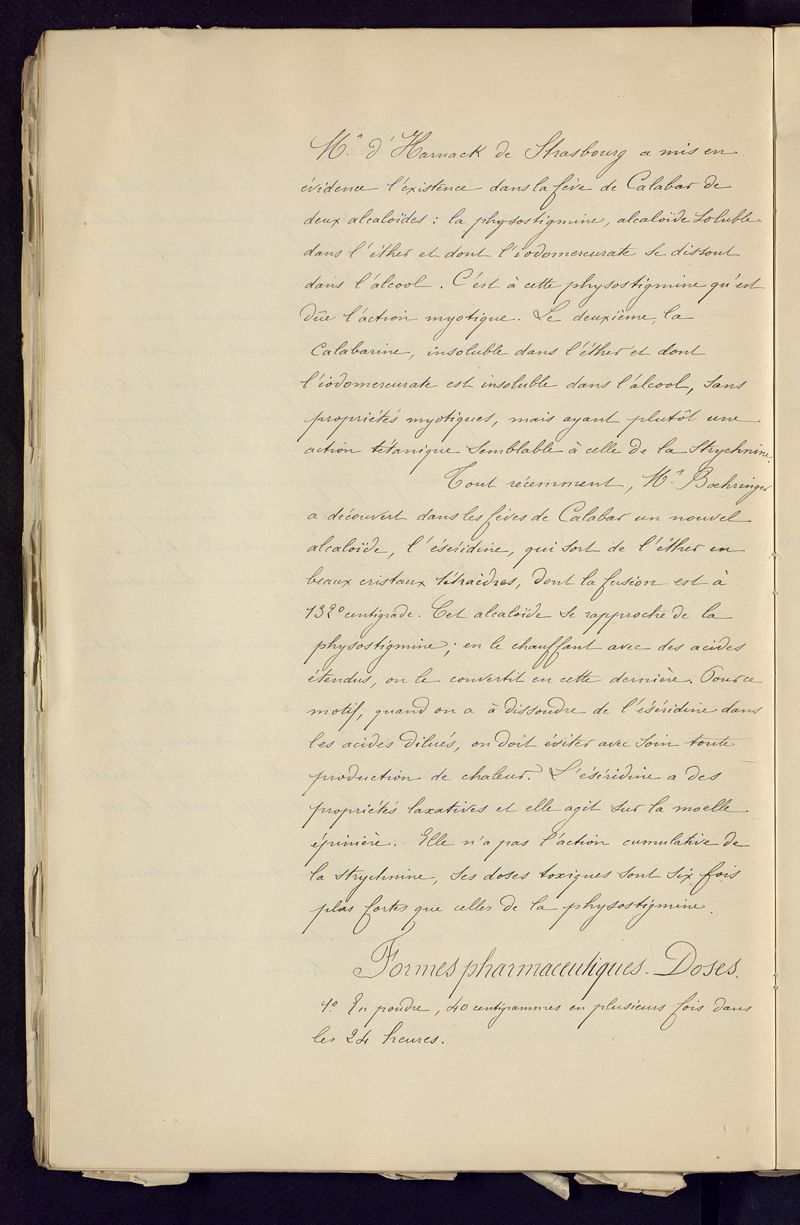 Mr d'Harnack de Strasbourg a mis en
évidence l'existence dans la fève de Calabar de
deux alcaloïdes : la physostigmine, alcaloïde soluble
dans l'éther et dont l'iodomercurate se dissout
dans l'alcool. C'est à cette physostigmine qu'est
dûe l'action myotique. Le deuxième, la
Calabarine, insoluble dans l'éther et dont
l'iodomercurate est insoluble dans l'alcool, sans
propriétés myotiques, mais ayant plutôt une
action tétanique semblable à celle de la Strychnine.
Tout récemment, Mr Boehringer
a découvert dans les fèves de Calabar un nouvel
alcaloïde, l'éséridine, qui sort de l'éther en
beaux cristaux tétraèdres, dont la fusion est à
132° centigrade. Cet alcaloïde se rapproche de la
physostigmine ; en le chauffant avec des acides
étendus, on le convertit en cette dernière. Pour ce
motif, quand on a à dissoudre de l'éséridine dans
les acides dilués, on doit éviter avec soin toute
production de chaleur. L'éséridine a des
propriétés laxatives et elle agit sur la moelle
épinière. Elle n'a pas l'action cumulative de
la strychnine, ses doses toxiques sont six fois
plus fortes que celles de la physostigmine.
Formes pharmaceutiques - Doses.
1° En poudre, 40 centigrammes en plusieurs fois dans
les 24 heures.